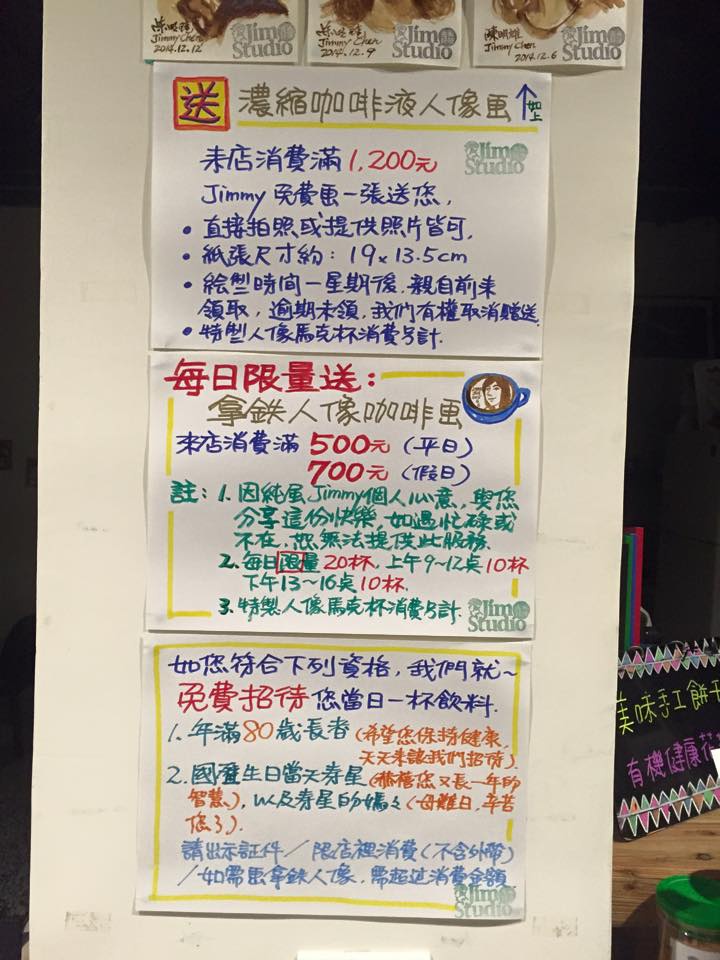 Jimmy Chen
2014.12.12
Jimmy Chen
2014.12.9
陳明雄
Jimmy Chen
2014.12.6
Jim Studio
Jim Studio
Jim Studio
送 濃縮咖啡液人像画 如上
来店消費滿 1,200元
Jim Studio
Jimmy 免費画一張送您,
• 直接拍照或提供照片皆可,
• 紙張尺寸約: 19x13.5cm
• 絵製時間一星期後,親自前来
領取,逾期未領,我們有權取消贈送.
• 特製人像馬克杯消費另計.
每日限量送:
拿鉄人像咖啡画
来店消費滿 500元 (平日)
700元 (假日)
註: 1. 因純屬Jimmy個人心意,與您
分享這份快樂,如遇忙碌或
不在,恕無法提供此服務.
2. 每日限量20杯,上午9~12點10杯
下午13~16點10杯.
3. 特製人像馬克杯消費另計.
Jim Studio
如您符合下列資格,我們就~
免費招待您當日一杯飲料.
1. 年滿80歲長者(希望您保持健康,
天天来讓我們招待).
2. 國曆生日當天壽星(恭禧您又長一年的
智慧),以及壽星的媽々(母難日,辛苦
您了).
請出示証件/限店裡消費(不含外帶)
/如需画拿鉄人像,需超过消費金額
Jim Studio
美味手工餅干
有機健康花